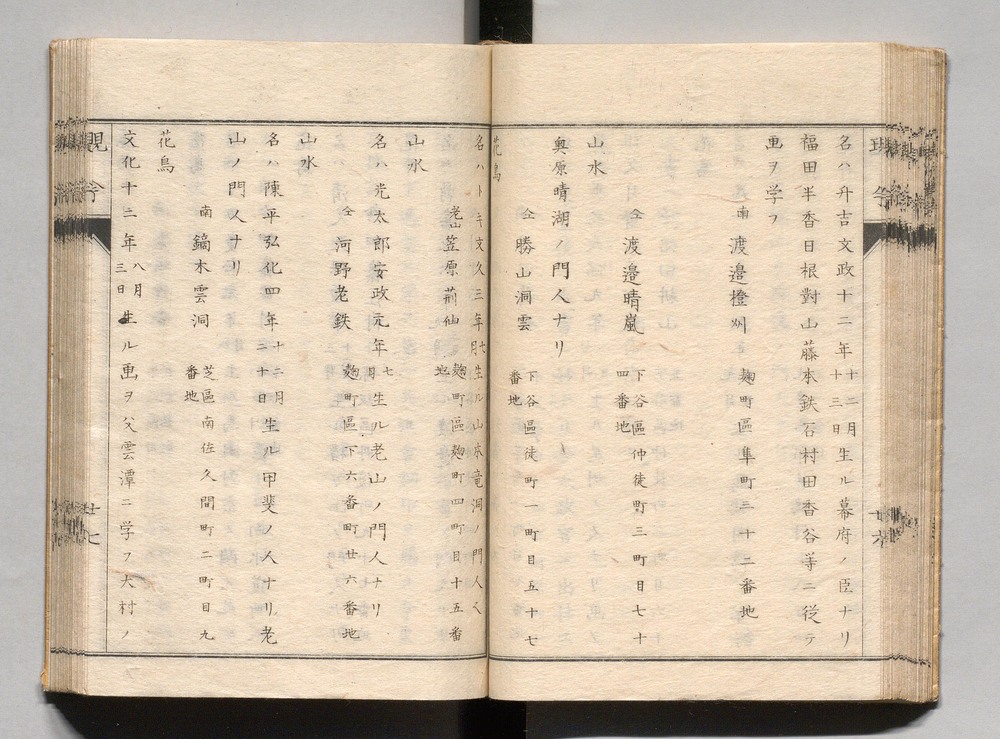 名ハ升吉文政十二年十二月十三日生ル幕府ノ臣ナリ
福田半香日根對山藤本鉄石村田香谷等ニ從テ
画ヲ学フ
南 渡邉橙刈 麹町區隼町三十二番地
仝 渡邉晴嵐 下谷區仲徒町三町目七十四番地
山水
奥原晴湖ノ門人ナリ
仝 勝山洞雲 下谷區徒町一町目五十七番地
花鳥
名ハトキ文久三年七月生ル山本竜洞ノ門人
老山 笠原荊仙 麹町區麹町四町目十五番地
山水
名ハ光太郎安政元年七月生ル老山ノ門人ナリ
仝 河野老鉄 麹町區下六番町廿六番地
山水
名ハ陳平弘化四年十二月二十日生ル甲斐ノ人ナリ老
山ノ門人ナリ
南 鏑木雲洞 芝區南佐久間町二町目九番地
花鳥
文化十三年八月三日生ル画ヲ父雲潭ニ学フ大村ノ
現今
廿六
現今
廿七